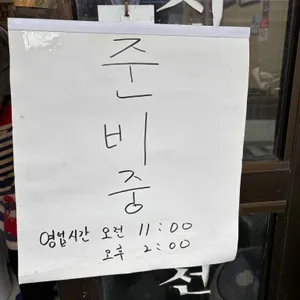 준
비
중
영업시간 오전 11:00
오후 2:00
전